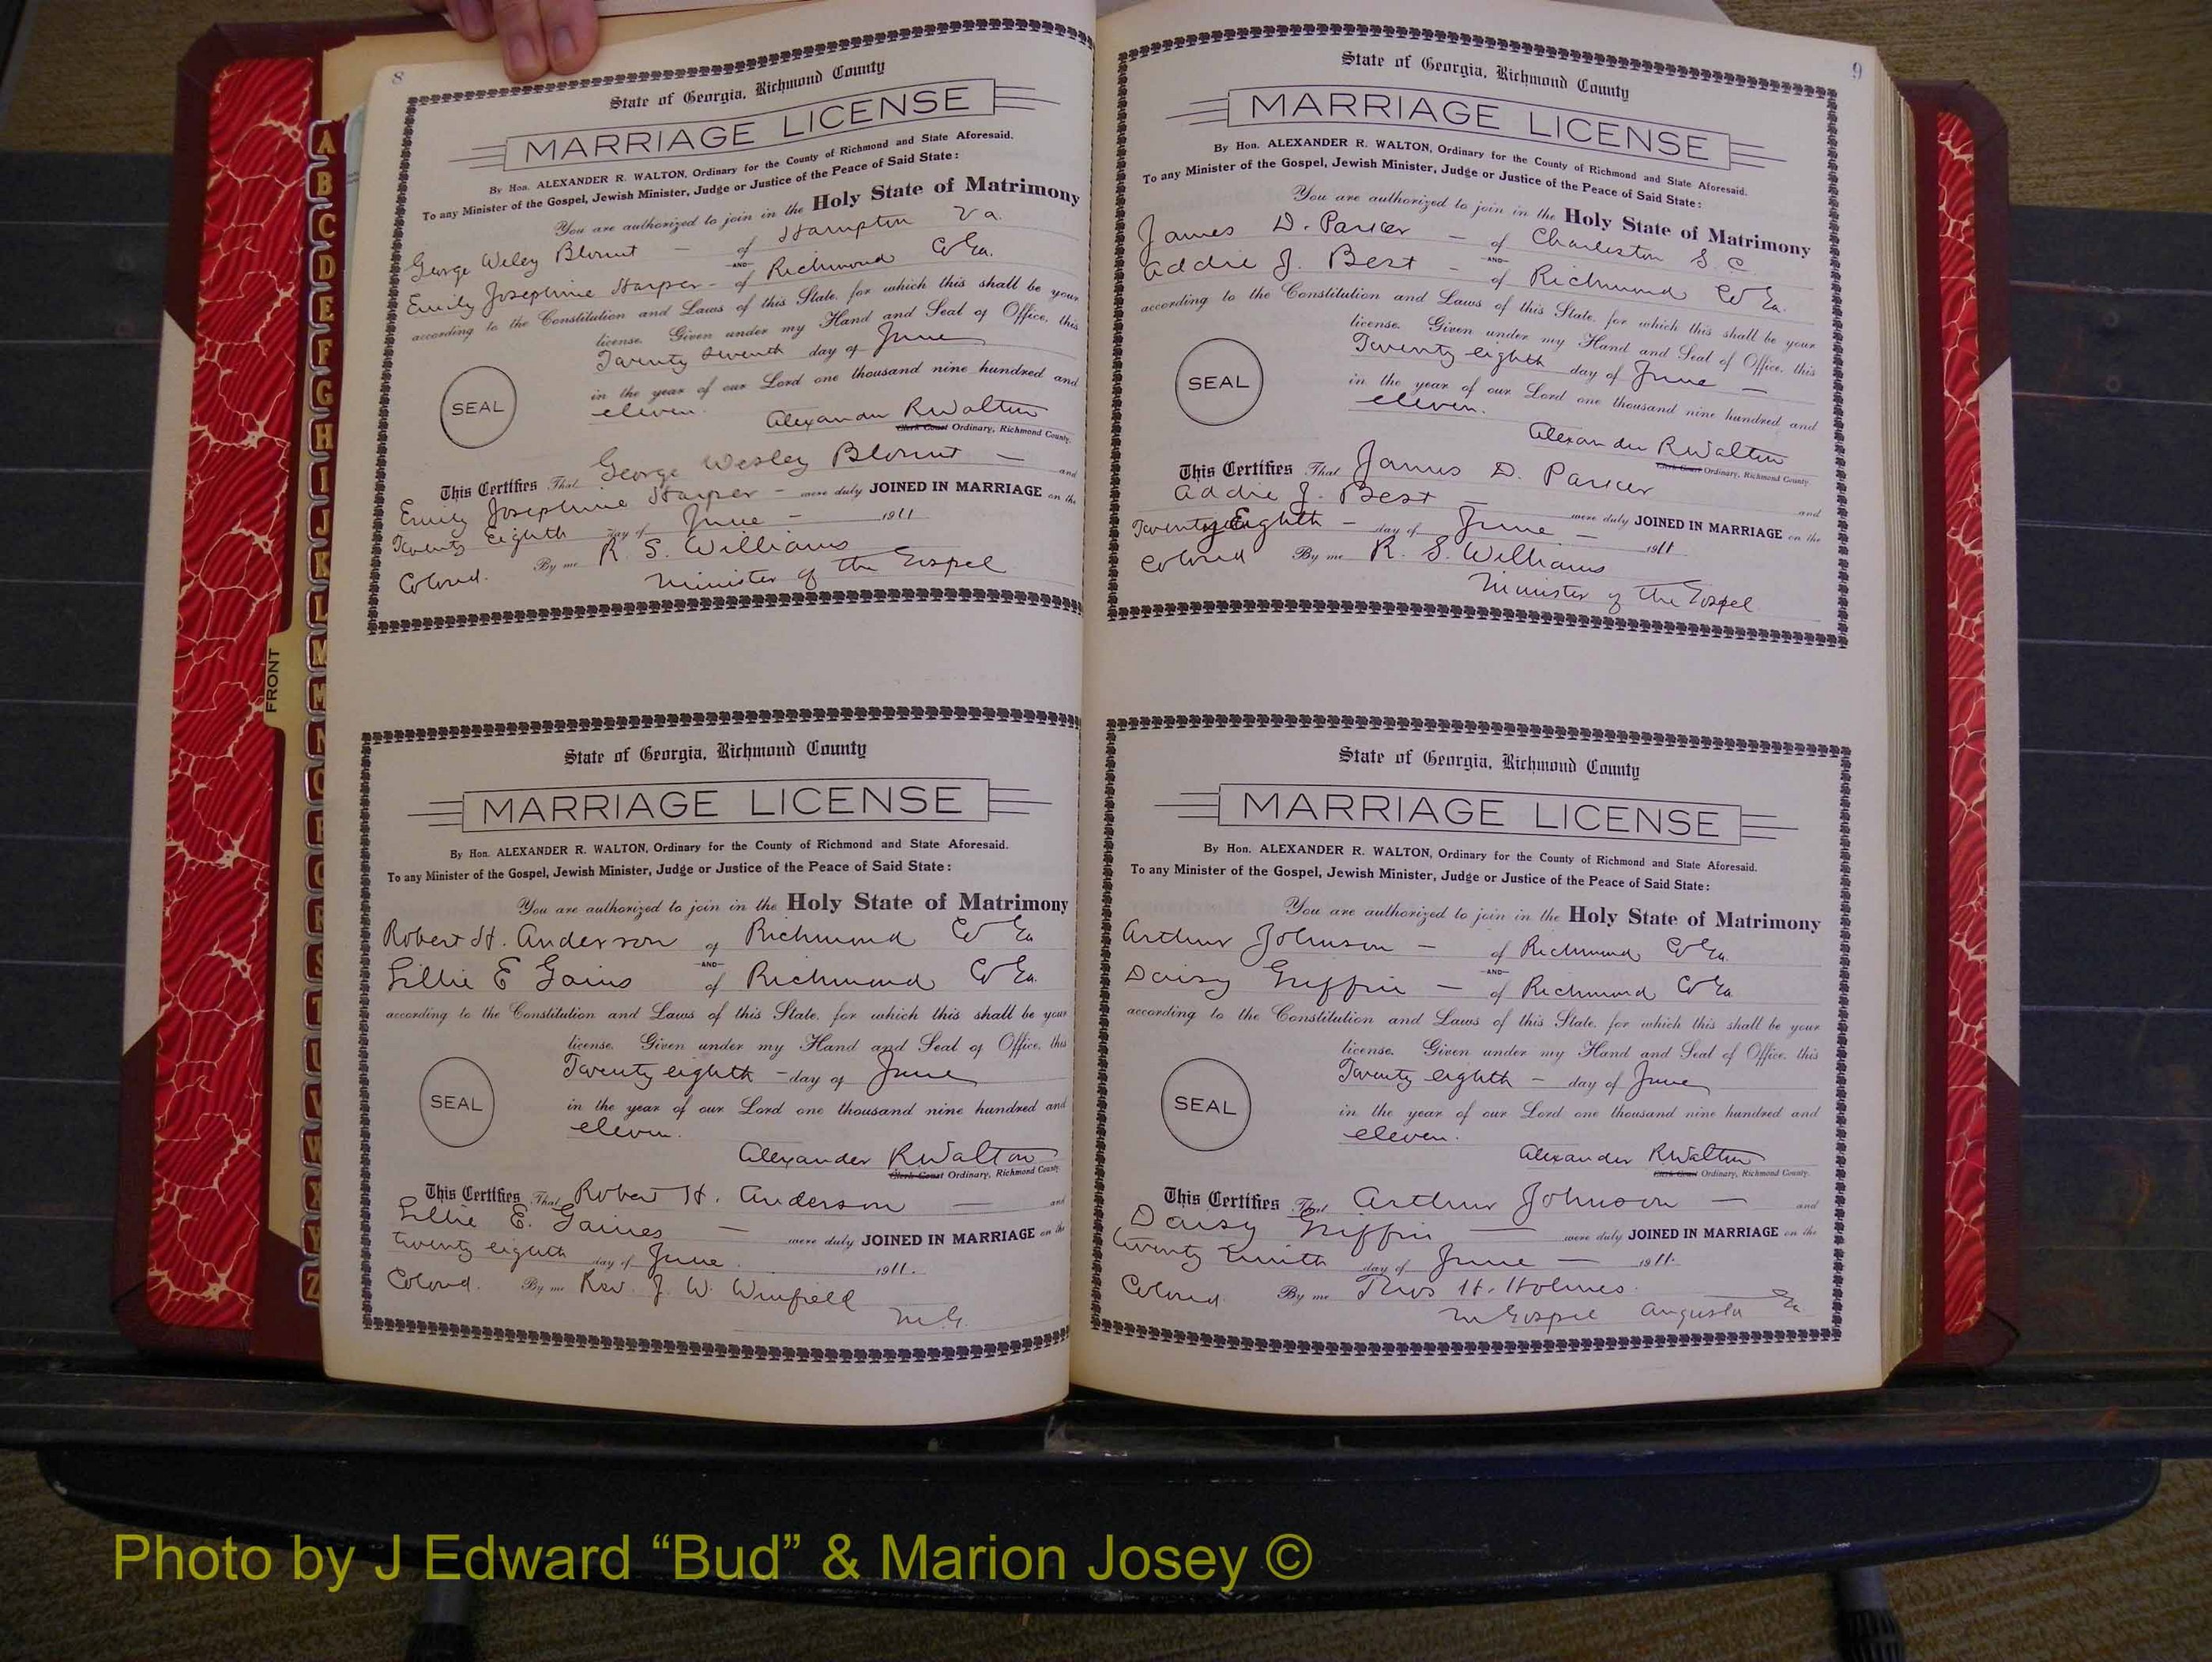 8
State of Georgia, Richmond County
MARRIAGE LICENSE
By Hon. ALEXANDER R. WALTON, Ordinary for the County of Richmond and State Aforesaid.
To any Minister of the Gospel, Jewish Minister, Judge or Justice of the Peace of Said State:
You are authorized to join in the Holy State of Matrimony
George Wesley Blount – of Hampton Va.
AND
Emily Josephine Harper – of Richmond Co Ga.
according to the Constitution and Laws of this State, for which this shall be your
license. Given under my Hand and Seal of Office, this
Twenty Seventh day of June
SEAL
in the year of our Lord one thousand nine hundred and
eleven.
Alexander R Walton
Clerk Court Ordinary, Richmond County.
This Certifies That George Wesley Blount – and
Emily Josephine Harper – were duly JOINED IN MARRIAGE on the
Twenty Eighth day of June – 1911
Colored. By me R. S. Williams
Minister of the Gospel
State of Georgia, Richmond County
MARRIAGE LICENSE
By Hon. ALEXANDER R. WALTON, Ordinary for the County of Richmond and State Aforesaid.
To any Minister of the Gospel, Jewish Minister, Judge or Justice of the Peace of Said State:
You are authorized to join in the Holy State of Matrimony
Robert H. Anderson of Richmond Co Ga
AND
Lillie E Gains of Richmond Co Ga.
according to the Constitution and Laws of this State, for which this shall be your
license. Given under my Hand and Seal of Office, this
Twenty eighth – day of June
SEAL
in the year of our Lord one thousand nine hundred and
eleven.
Alexander R Walton
Clerk Court Ordinary, Richmond County.
This Certifies That Robert H. Anderson – and
Lillie E. Gaines – were duly JOINED IN MARRIAGE on the
twenty eighth day of June 1911.
Colored. By me Rev. J. W. Winfield
M.G.
9
State of Georgia, Richmond County
MARRIAGE LICENSE
By Hon. ALEXANDER R. WALTON, Ordinary for the County of Richmond and State Aforesaid.
To any Minister of the Gospel, Jewish Minister, Judge or Justice of the Peace of Said State:
You are authorized to join in the Holy State of Matrimony
James D. Parker – of Charleston S C
AND
Addie J. Best – of Richmond Co Ga.
according to the Constitution and Laws of this State, for which this shall be your
license. Given under my Hand and Seal of Office, this
Twenty eighth day of June –
SEAL
in the year of our Lord one thousand nine hundred and
eleven.
Alexander R Walton
Clerk Court Ordinary, Richmond County.
This Certifies That James D. Parker
Addie J. Best – and
were duly JOINED IN MARRIAGE on the
Twenty Eighth – day of June – 1911
Colored By me R. S. Williams
Minister of the Gospel
State of Georgia, Richmond County
MARRIAGE LICENSE
By Hon. ALEXANDER R. WALTON, Ordinary for the County of Richmond and State Aforesaid.
To any Minister of the Gospel, Jewish Minister, Judge or Justice of the Peace of Said State:
You are authorized to join in the Holy State of Matrimony
Arthur Johnson – of Richmond Co Ga.
AND
Daisy Griffin – of Richmond Co Ga
according to the Constitution and Laws of this State, for which this shall be your
license. Given under my Hand and Seal of Office, this
Twenty eighth – day of June
SEAL
in the year of our Lord one thousand nine hundred and
eleven.
Alexander R Walton
Clerk Court Ordinary, Richmond County.
This Certifies That Arthur Johnson – and
Daisy Griffin – were duly JOINED IN MARRIAGE on the
twenty ninth day of June – 1911.
Colored. By me Thos H. Holmes.
M Gospel Augusta Ga
A
B
C
D
E
F
G
H
I
J
K
L
M
M
N
O
P
Q
R
S
T
U
V
W
X
Y
Z
FRONT
Photo by J Edward “Bud” & Marion Josey ©